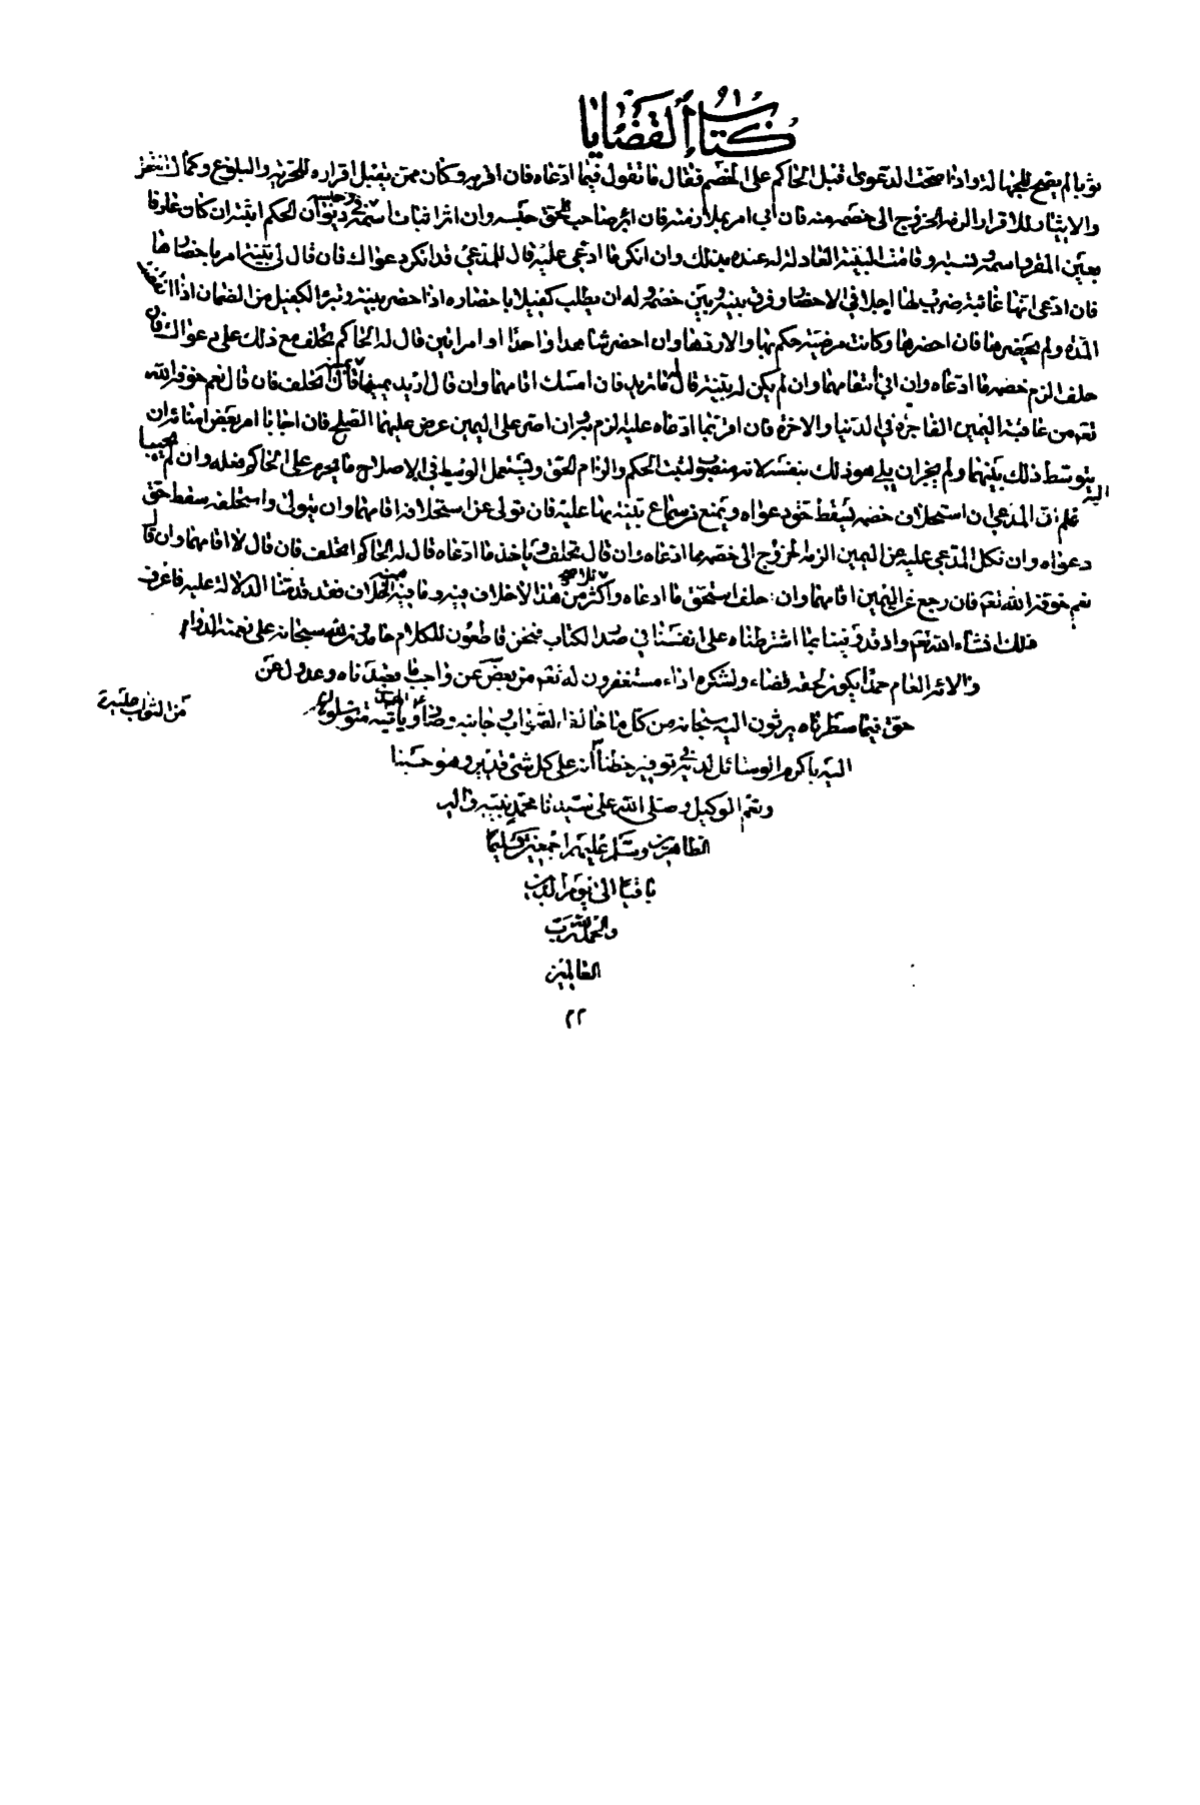 كتاب القضايا
ثوبا لم يصح للجهالة واذا صحت الدعوى قبل الحاكم على الخصم فقال ما تقول فيما ادعاه فان اقر به وكان ممن يقبل اقراره للحرية والبلوغ وكمال
والايثار للاقرار الزمه الخروج الى خصمه منه فان ابى امر بملازمته فان اثر صاحب الحق حبسه وان اثر اثبات اسمه في ديوان الحكم اثبته ان كان عارفا
بعين المقر واسمه ونسبه او قامت البينة العادلة له عنده بذلك وان انكر ما ادعى عليه قال للمدعي قد انكر دعواك فان قال لي بينة امر باحضارها
فان ادعى انها غائبة ضرب لها اجلا في الاحضار وفرق بينه وبين خصمه وله ان يطلب كفيلا باحضاره اذا احضر بينته وتبرء الكفيل من الضمان اذا
المدة ولم يحضرها فان احضرها وكانت مرضية حكم بها والا رد وان احضر شاهدا واحدا او امراتين قال له الحاكم تحلف مع ذلك على دعواك فان
حلف الزم خصمه ما ادعاه وان ابى اقامهما وان لم يكن له بينة قال له ما تريد فان امسك اقامهما وان قال اريد يمينه قال اتحلف فان قال نعم خوفه الله
تعالى من عاقبة اليمين الفاجرة في الدنيا والاخرة فان اقر بما ادعاه عليه لزمه وان اصر على اليمين عرض عليهما الصلح فان اجابا امر بعض امنائه ان
يتوسط ذلك بينهما ولم يجز ان يلي هو ذلك بنفسه لانه منصوب لبت الحكم والزام الحق ويستعمل الوسيط في الاصلاح ما يحرم على الحاكم فعله وان لم يجيبا
اليه
علم ان المدعي ان استحلاف خصمه يسقط حق دعواه ويمنع من سماع بينة بها عليه فان تولى عن استحلافه اقامهما وان واستحلفه سقط حق
دعواه وان نكل المدعى عليه عن اليمين الزمه الخروج الى خصمه مما ادعاه وان قال يحلف وياخذ ما ادعاه قال له الحاكم اتحلف فان قال لا اقامهما وان قال
نعم خوفه الله تعالى فان رجع عن اليمين اقامهما وان حلف استحق ما ادعاه واكثر من هذا الاخلاف فيه وما فيه الخلاف منه فقد قدمنا الدلالة عليه فاعرف
ذلك انشاء الله تعالى واذ قد وفينا بما اشترطناه على انفسنا في صدر الكتاب فنحن قاطعون للكلام حامدون لله سبحانه على نعمه الدوام
والائه العام حمدا يكون لحقه قضاء ولشكره اداء مستغفرون له تعالى من بعض عن واجب ما قصدناه وعدول عن
حق فيما سطرناه يرثون اليه سبحانه من كل ما خالف الصواب وجانبه وضاد متوسلون
من الثواب جلبته
اليه باكرم الوسائل لديه في توفير حظنا انه على كل شئ قدير وهو حسبنا
ونعم الوكيل وصلى الله على سيدنا محمد نبيه واله
الطاهرين وسلم عليهم اجمعين تسليما
باقيا الى يوم الدين
والحمد لله رب
العالمين
٢٢